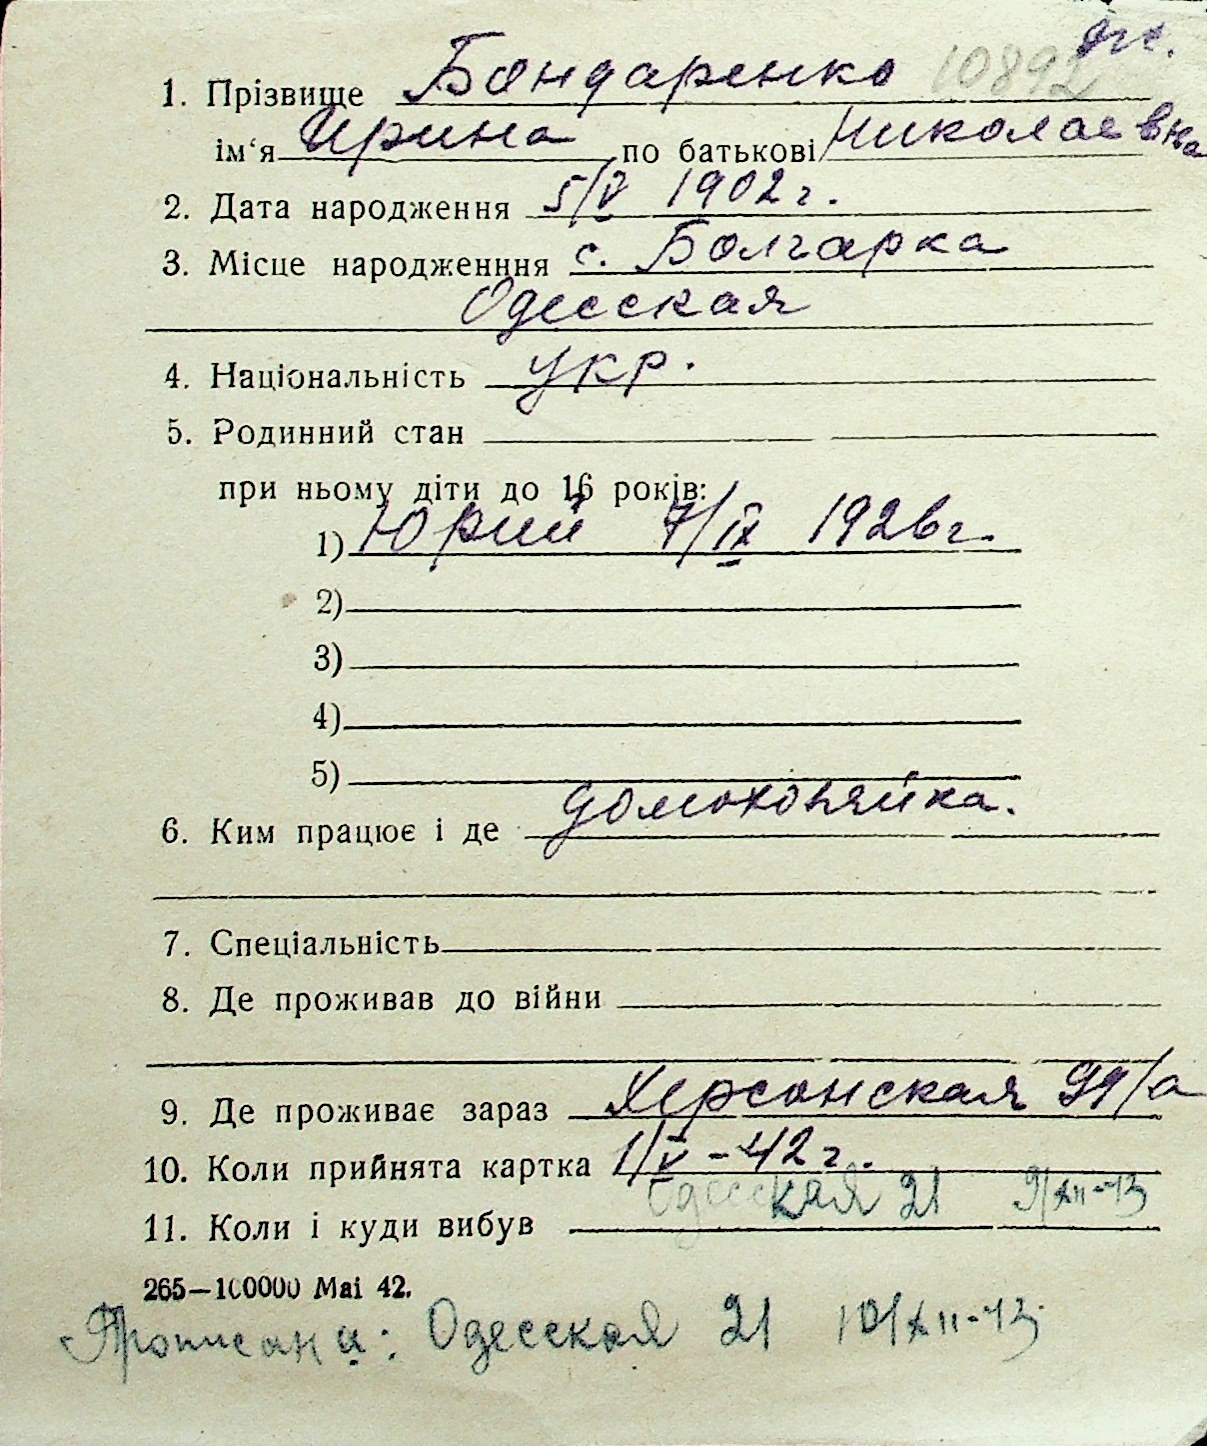 10892
1. Прізвище Бондаренко
ім'я Ирина по батькові Николаевна
2. Дата народження 5/V 1902 г.
3. Місце народженння с. Болгарка
Одесская
4. Національність укр.
5. Родинний стан
при ньому діти до 16 років:
1) Юрий 7/IX 1926 г.
2)
3)
4)
5)
6. Ким працює і де домохозяйка.
7. Спеціальність
8. Де проживав до війни
9. Де проживає зараз Херсонская 99/а
10. Коли прийнята картка 1/V-42 г.
Одесская 21 9/XII-43
11. Коли і куди вибув
265—100000 Mai 42.
Прописана: Одесская 21 10/XII-43